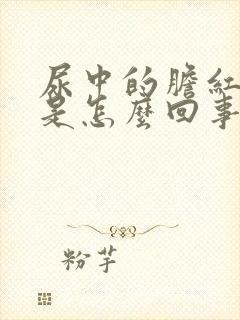 尿中的膽紅
是怎麼回事
粉芋